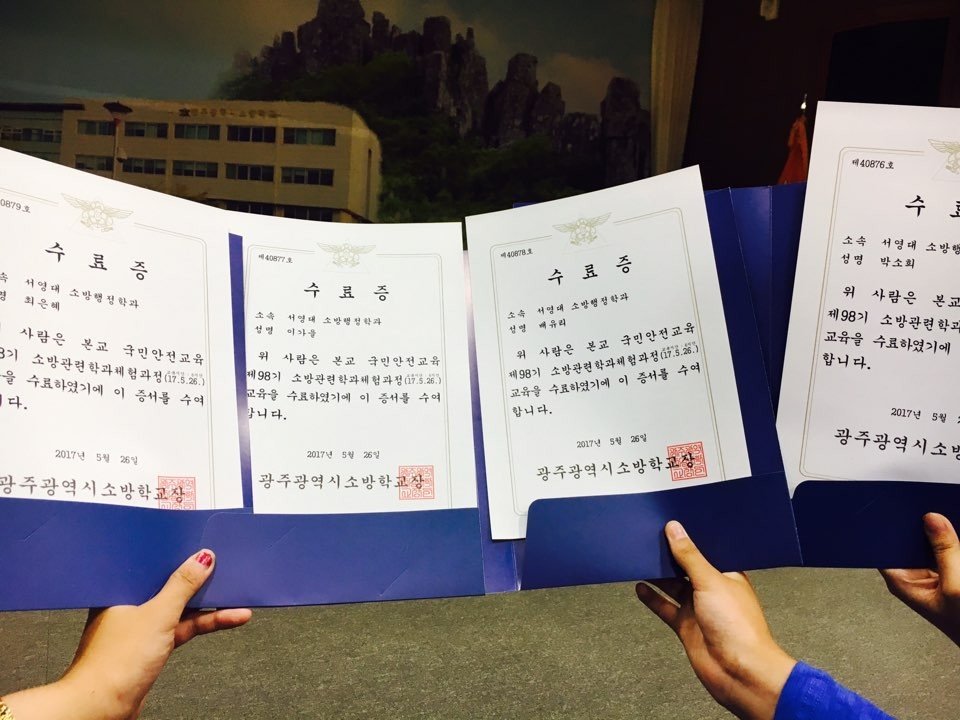 0879호
수 료 증
속 서영대 소방행정학과
명 최은혜
위 사람은 본교 국민안전교육
8기 소방관련학과체험과정(17.5.26.)
을 수료하였기에 이 증서를 수여
니다.
2017년 5월 26일
광주광역시소방학교장
제40877호
수 료 증
소속 서영대 소방행정학과
성명 이가을
위 사람은 본교 국민안전교육
제98기 소방관련학과체험과정(17.5.26.)
교육을 수료하였기에 이 증서를 수여
합니다.
2017년 5월 26일
광주광역시소방학교장
제40878호
수 료 증
소속 서영대 소방행정학과
성명 배유리
위 사람은 본교 국민안전교육
제98기 소방관련학과체험과정(17.5.26.)
교육을 수료하였기에 이 증서를 수여
합니다.
2017년 5월 26일
광주광역시소방학교장
제40876호
수 료
소속 서영대 소방행
성명 박소희
위 사람은 본교
제98기 소방관련학과
교육을 수료하였기에
합니다.
2017년 5월
광주광역시소방